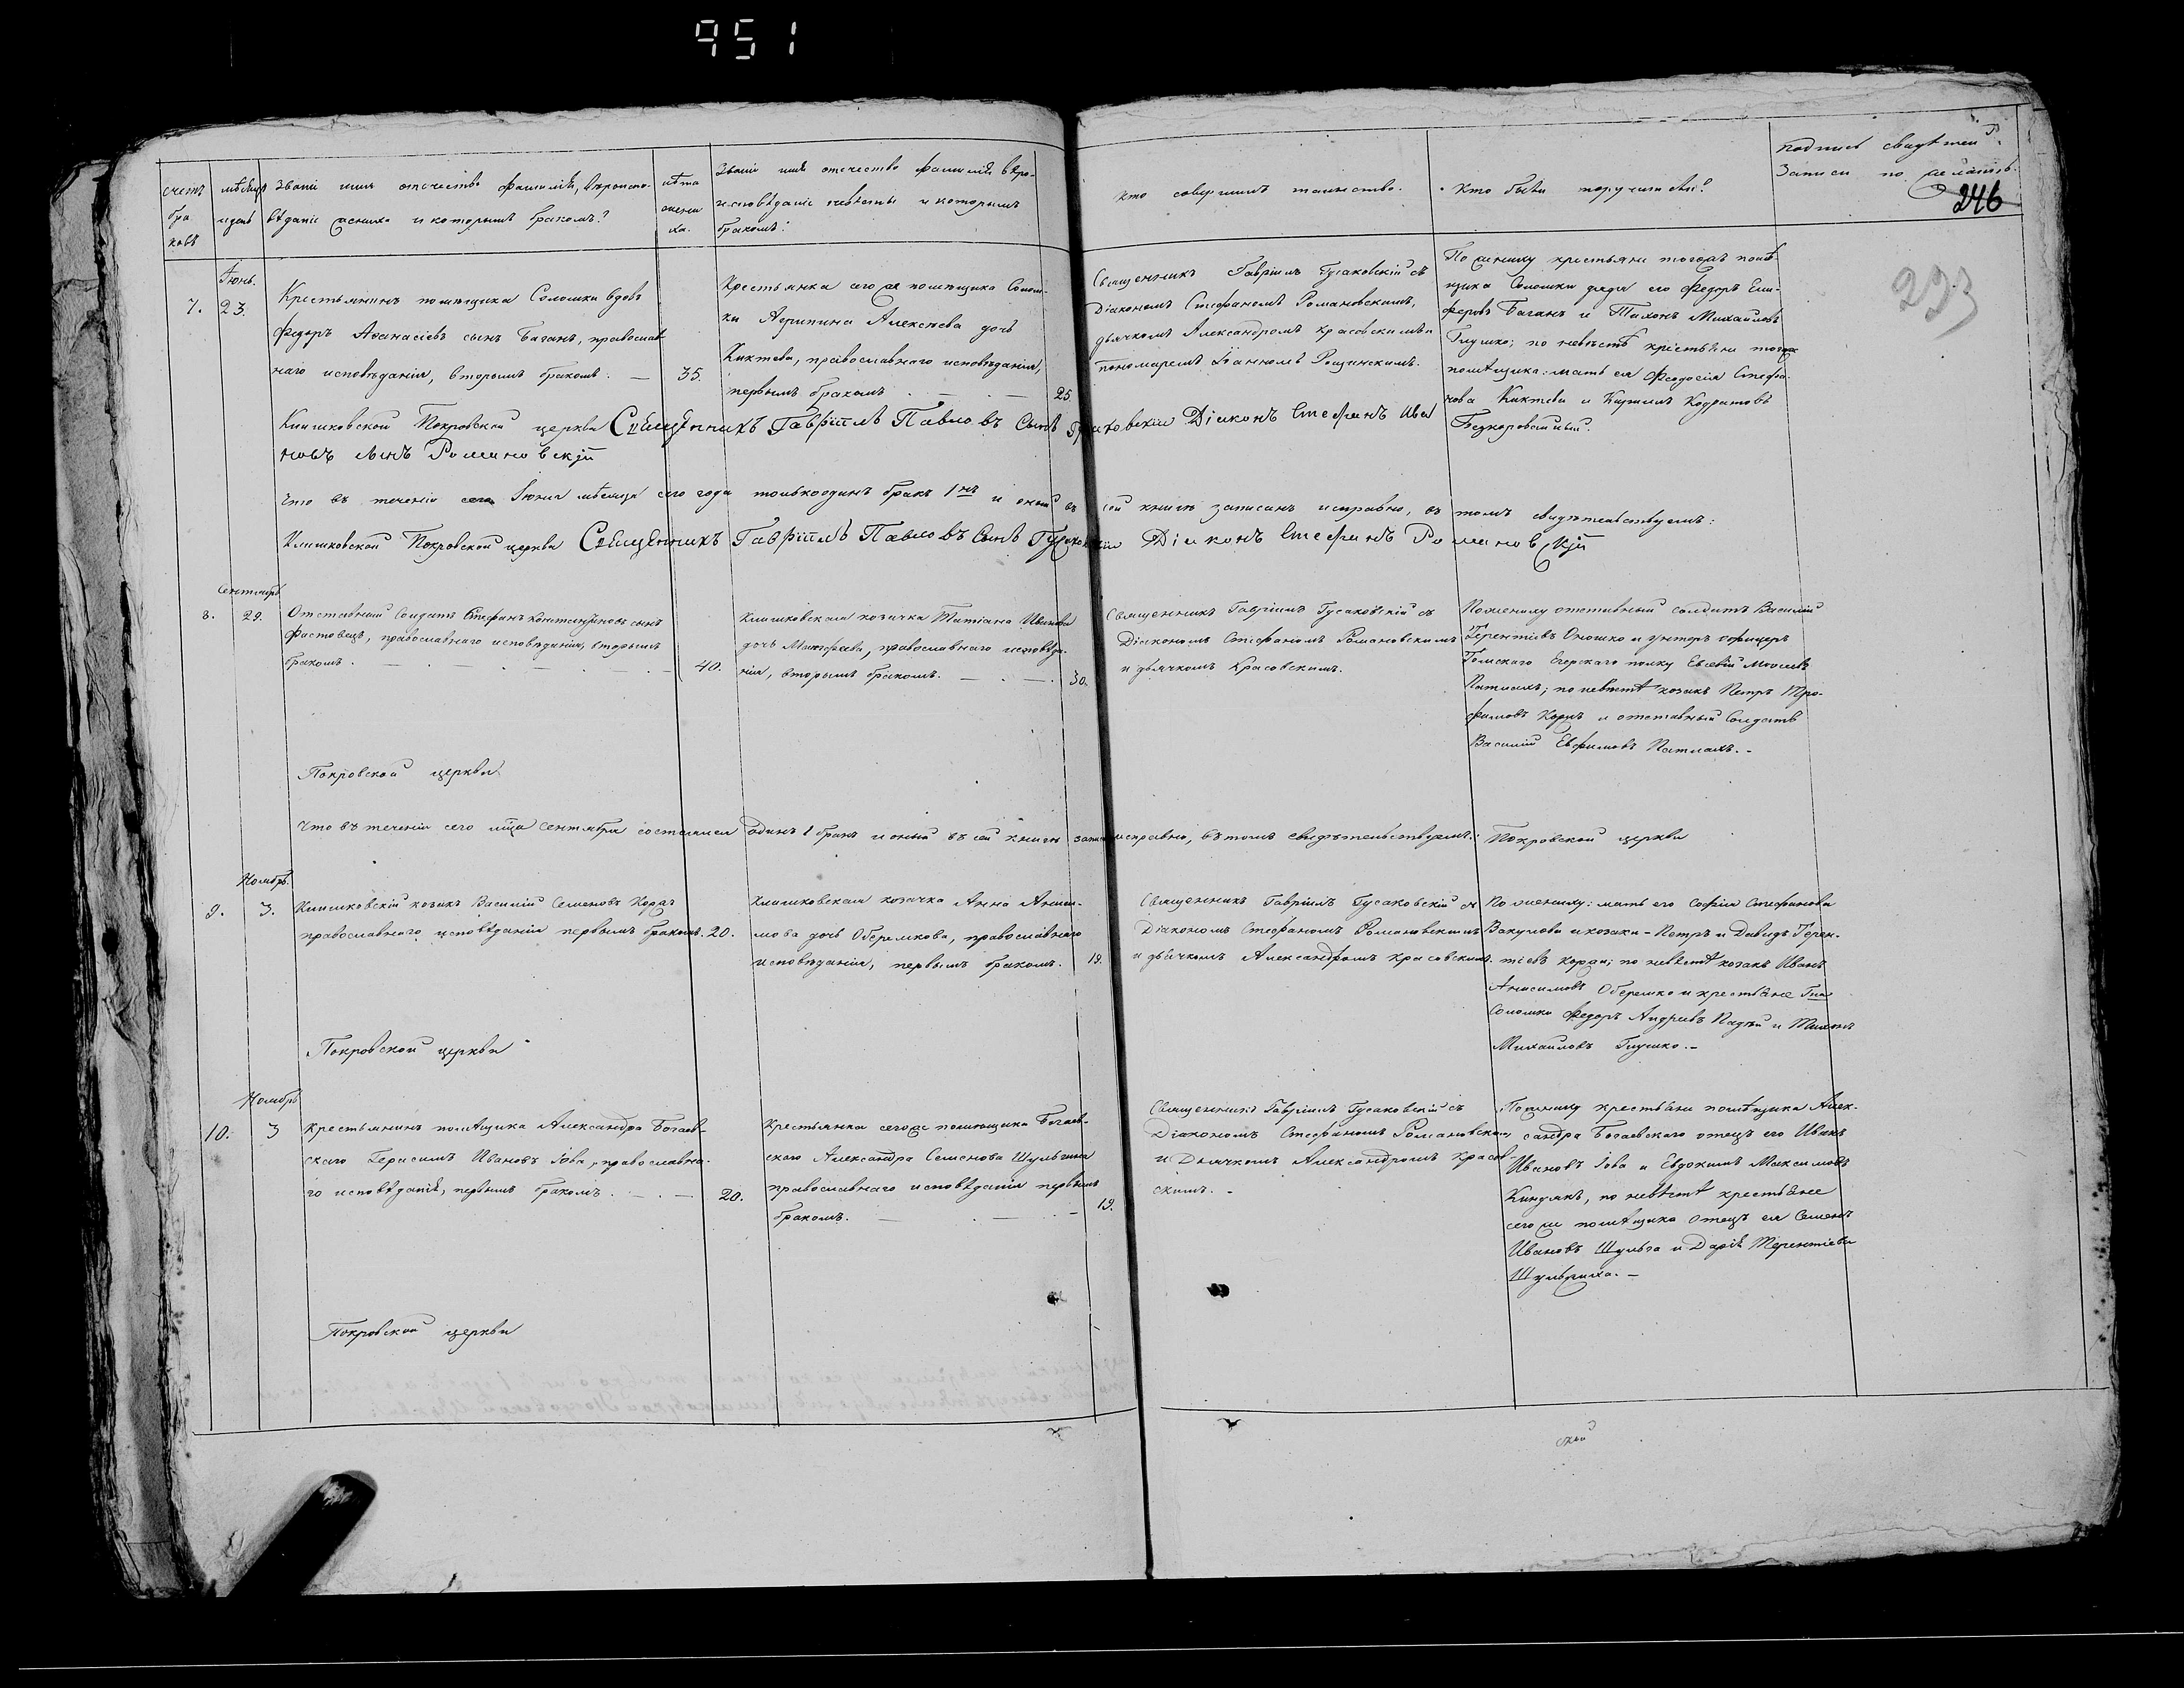 951
счетъ браковъ
мѣсяцъ и день
Званіе имя отечество фамилія, вѣроиспо-
вѣданіе жениха и которымъ бракомъ?
лѣта жениха.
Званіе имя отечество фамилія вѣро-
исповѣданіе невѣсты и которымъ
бракомъ?
Кто совершилъ таинство.
Кто были поручители?
подпись свидѣтелей
записи по желанію.
246
293
Іюнь.
7. 23.
Крестьянинъ помѣщика Соломки вдовъ
Федоръ Афанасіевъ сынъ Баганъ, православ
наго исповѣданія, вторымъ бракомъ. —
35.
Крестьянка сего же помѣщика Солом-
ки Агрипина Алексѣева дочь
Киктева, православнаго исповѣданія,
первымъ бракомъ
25
Священникъ Гавріилъ Гусаковскій съ
Діакономъ Стефаномъ Романовскимъ,
дьячкомъ Александромъ Красовскимъ и
пономаремъ Рощинскимъ.
По жениху крестьяне тогожъ помѣ
щика Соломки дядя его Федоръ
Баганъ и Тихонъ Михайловъ
Глушко; по невѣстѣ крестьяни тогоже
помѣщика: мать ея Феодосія Стефа-
нова Киктева и Кирилъ Кодратовъ
Клишковской Покровской церкви Священникъ Гавріилъ Павловъ Сынъ Гусаковскій Діаконъ Стефанъ Ива
новъ Сынъ Романовскій
Что въ теченіи сего Іюня мѣсяца сего года только одинъ бракъ 1нъ и оной въ сей книгѣ записанъ исправно, въ томъ свидѣтельствуемъ:
Клишковской Покровской церкви Священникъ Гавріилъ Павловъ Сынъ Гусаковскій Діаконъ Стефанъ Романовскій
Сентябрь
8. 29.
Отставный Солдатъ Стефанъ Константиновъ сынъ
Фастовецъ, православнаго исповѣданія, вторымъ
бракомъ. —
40.
Клишковская козачка Татіана Иванова
дочь Матфеева, православнаго исповѣда-
нія, вторымъ бракомъ. —
30.
Священникъ Гавріилъ Гусаковскій съ
Діакономъ Стефаномъ Романовскимъ
и дьячкомъ Красовскимъ.
По жениху отставный солдатъ Василій
Терентіевъ Оношко и унтеръ офицеръ
Томскаго Егерскаго полку Евсевій Моѵсеевъ
Патлахъ; по невѣстѣ козакъ Петръ Тро-
фимовъ Коржъ и отставный Солдатъ
Василій Евфимовъ Патлахъ. -
Покровской церкви
Что въ теченіи сего мца Сентября состоялся одинъ 1 бракъ и оный въ сей книгѣ записанъ исправно, въ томъ свидѣтельствуемъ: Покровской церкви
Ноябрь.
9. 3.
Клишковскій козакъ Василій Семеновъ Коржъ
православнаго исповѣданія первымъ бракомъ. 20.
Клишковская козачка Анна Аниси-
мова дочь Оберемкова, православнаго
исповѣданія, первымъ бракомъ.
19.
Священникъ Гавріилъ Гусаковскій съ
Діакономъ Стефаномъ Романовскимъ
и дьячкомъ Александромъ Красовскимъ.
По жениху: мать его Софія Стефанова
Вакулова и козаки - Петръ и Давидъ Терен-
тіевъ Коржи; по невѣстѣ козакъ Иванъ
Анисимовъ Оберемко и крестьяне Гна
Соломки Федоръ Андреевъ и Тихонъ
Михайловъ Глушко. -
Покровской церкви
Ноябрь
10. 3
Крестьянинъ помѣщика Александра Богаев-
скаго Герасимъ Ивановъ Іова, православна-
го исповѣданія, первымъ бракомъ. —
20.
Крестьянка сегоже помѣщика Богаев-
скаго Александра Семенова Шульгина
православнаго исповѣданія первымъ
бракомъ. —
19.
Священникъ Гавріилъ Гусаковскій съ
Діакономъ Стефаномъ Романовскимъ
и Дьячкомъ Александромъ Красов-
скимъ. -
По жениху крестьяни помѣщика Алек-
сандра Богаевскаго отецъ его Иванъ
Ивановъ Іова и Евдокимъ Максимовъ
Киндякъ, по невѣстѣ крестьяне
сегоже помѣщика отецъ ея Семенъ
Ивановъ Шульга и Дарія Терентіева
Шульжиха. -
Покровской церкви